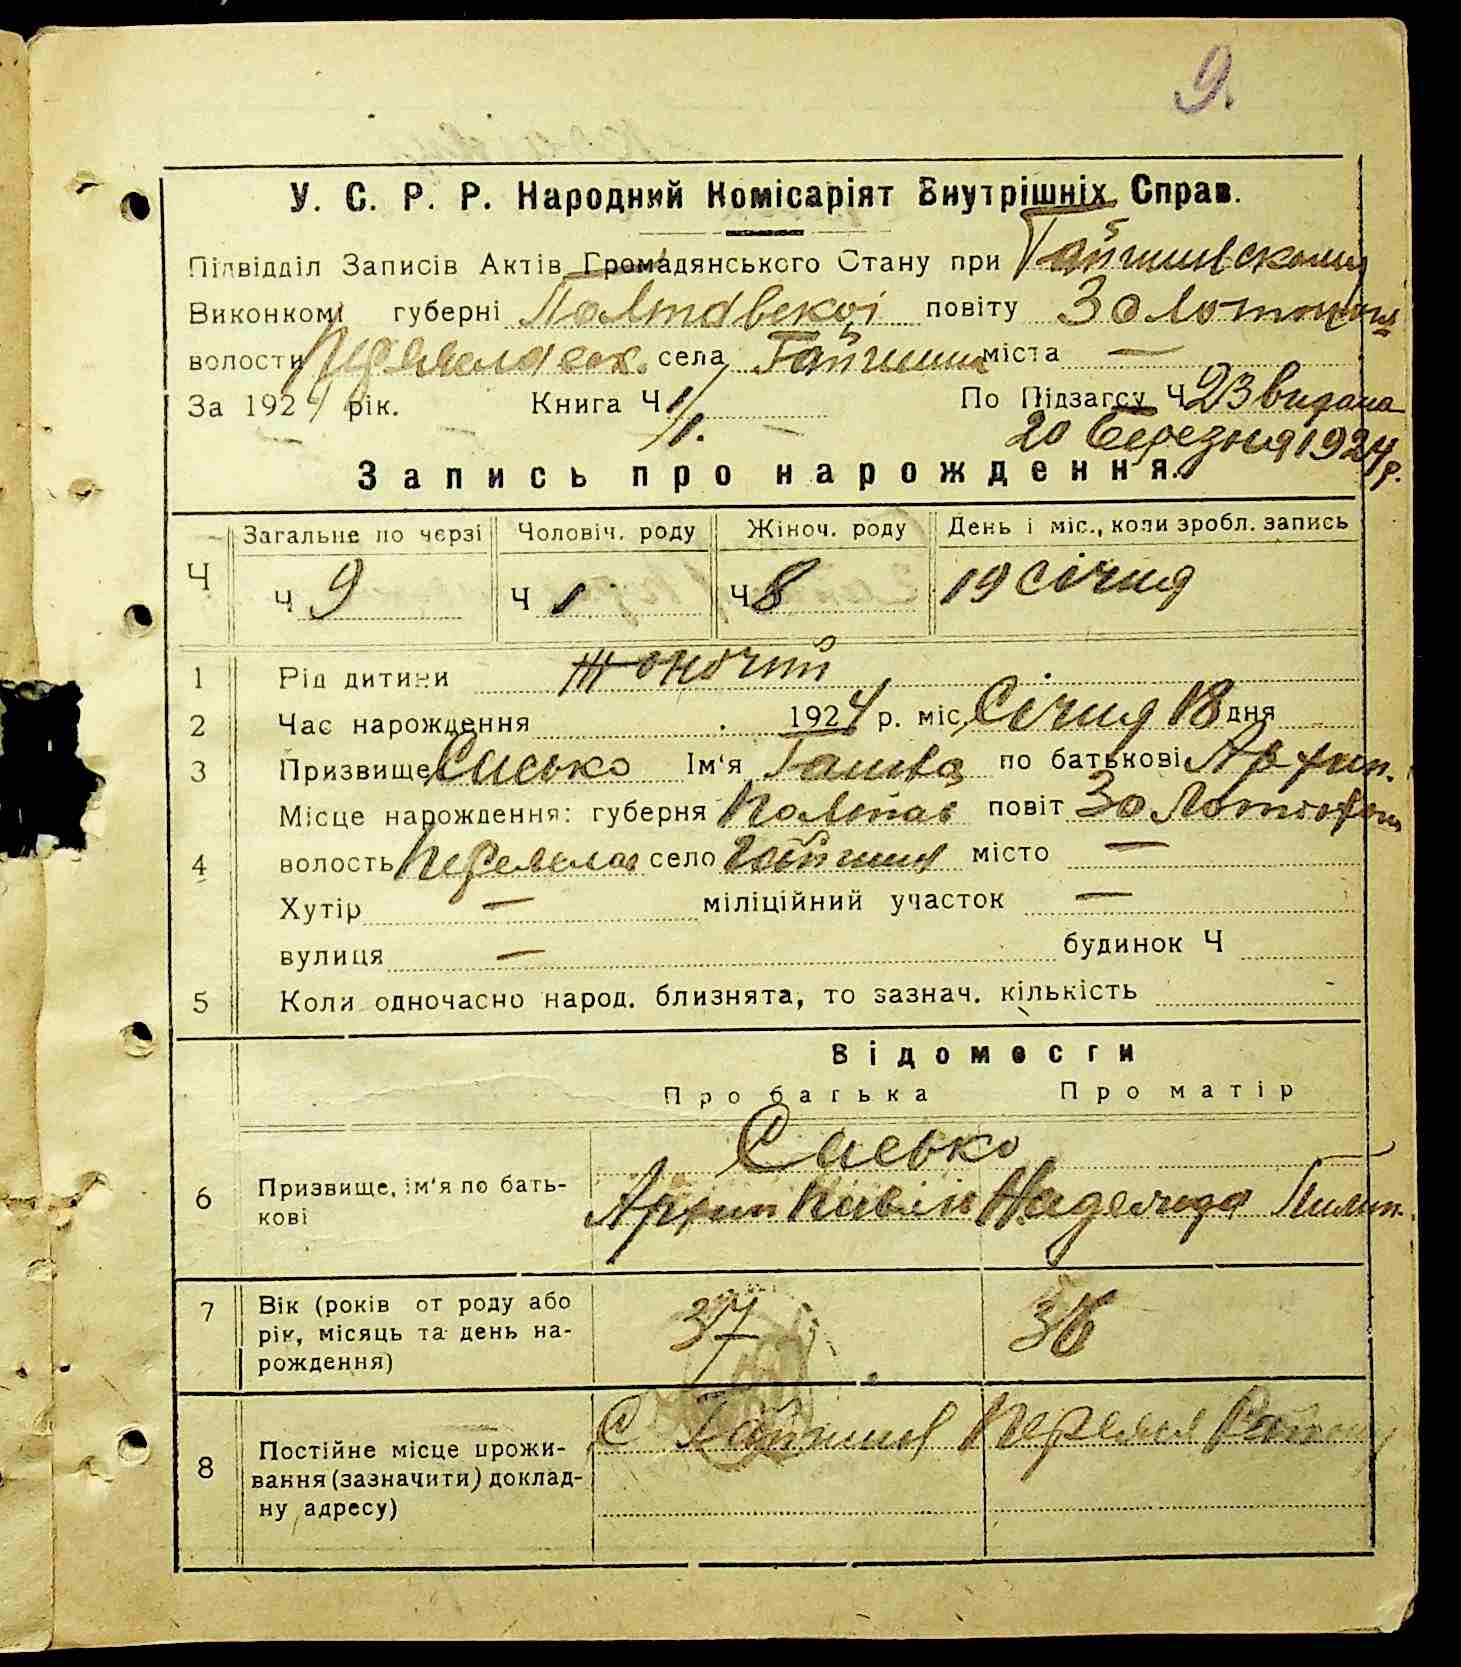 9.
У. С. Р. Р. Народний Комісаріят Внутрішніх Справ.
Підвідділ Записів Актів Громадянського Стану при Гайшинскому
Виконкомі губерні Полтавскоі повіту Золотонош
волости Переяславск. села Гайшин міста —
За 1924 рік. Книга Ч 1/1. По Підзагсу Ч 23 видана
20 Березня 1924 р.
Запись про нарождення.
Ч Загальне по черзі Чоловіч. роду Жіноч. роду День і міс., коли зробл. запись
Ч 9 Ч 1 Ч 8 19 Січня
1 Рід дитини жоночий
2 Час нарождення 1924 р. міс. Січня 18 дня
3 Призвище Сисько Ім'я Ганна по батькові Архип.
Місце нарождення: губерня Полтав повіт Золотонош
4 волость Переяслав село Гайшин місто —
Хутір — міліційний участок —
вулиця — будинок Ч
5 Коли одночасно народ. близнята, то зазнач. кількість
Відомости
Про батька Про матір
Сисько
6 Призвище, ім'я по бать-
кові
Архип Павлів Надежда Пилип.
7 Вік (років от роду або
рік, місяць та день на-
рождення)
37 36
С Гайшин Переясл Району
8 Постійне місце прожи-
вання (зазначити) доклад-
ну адресу)